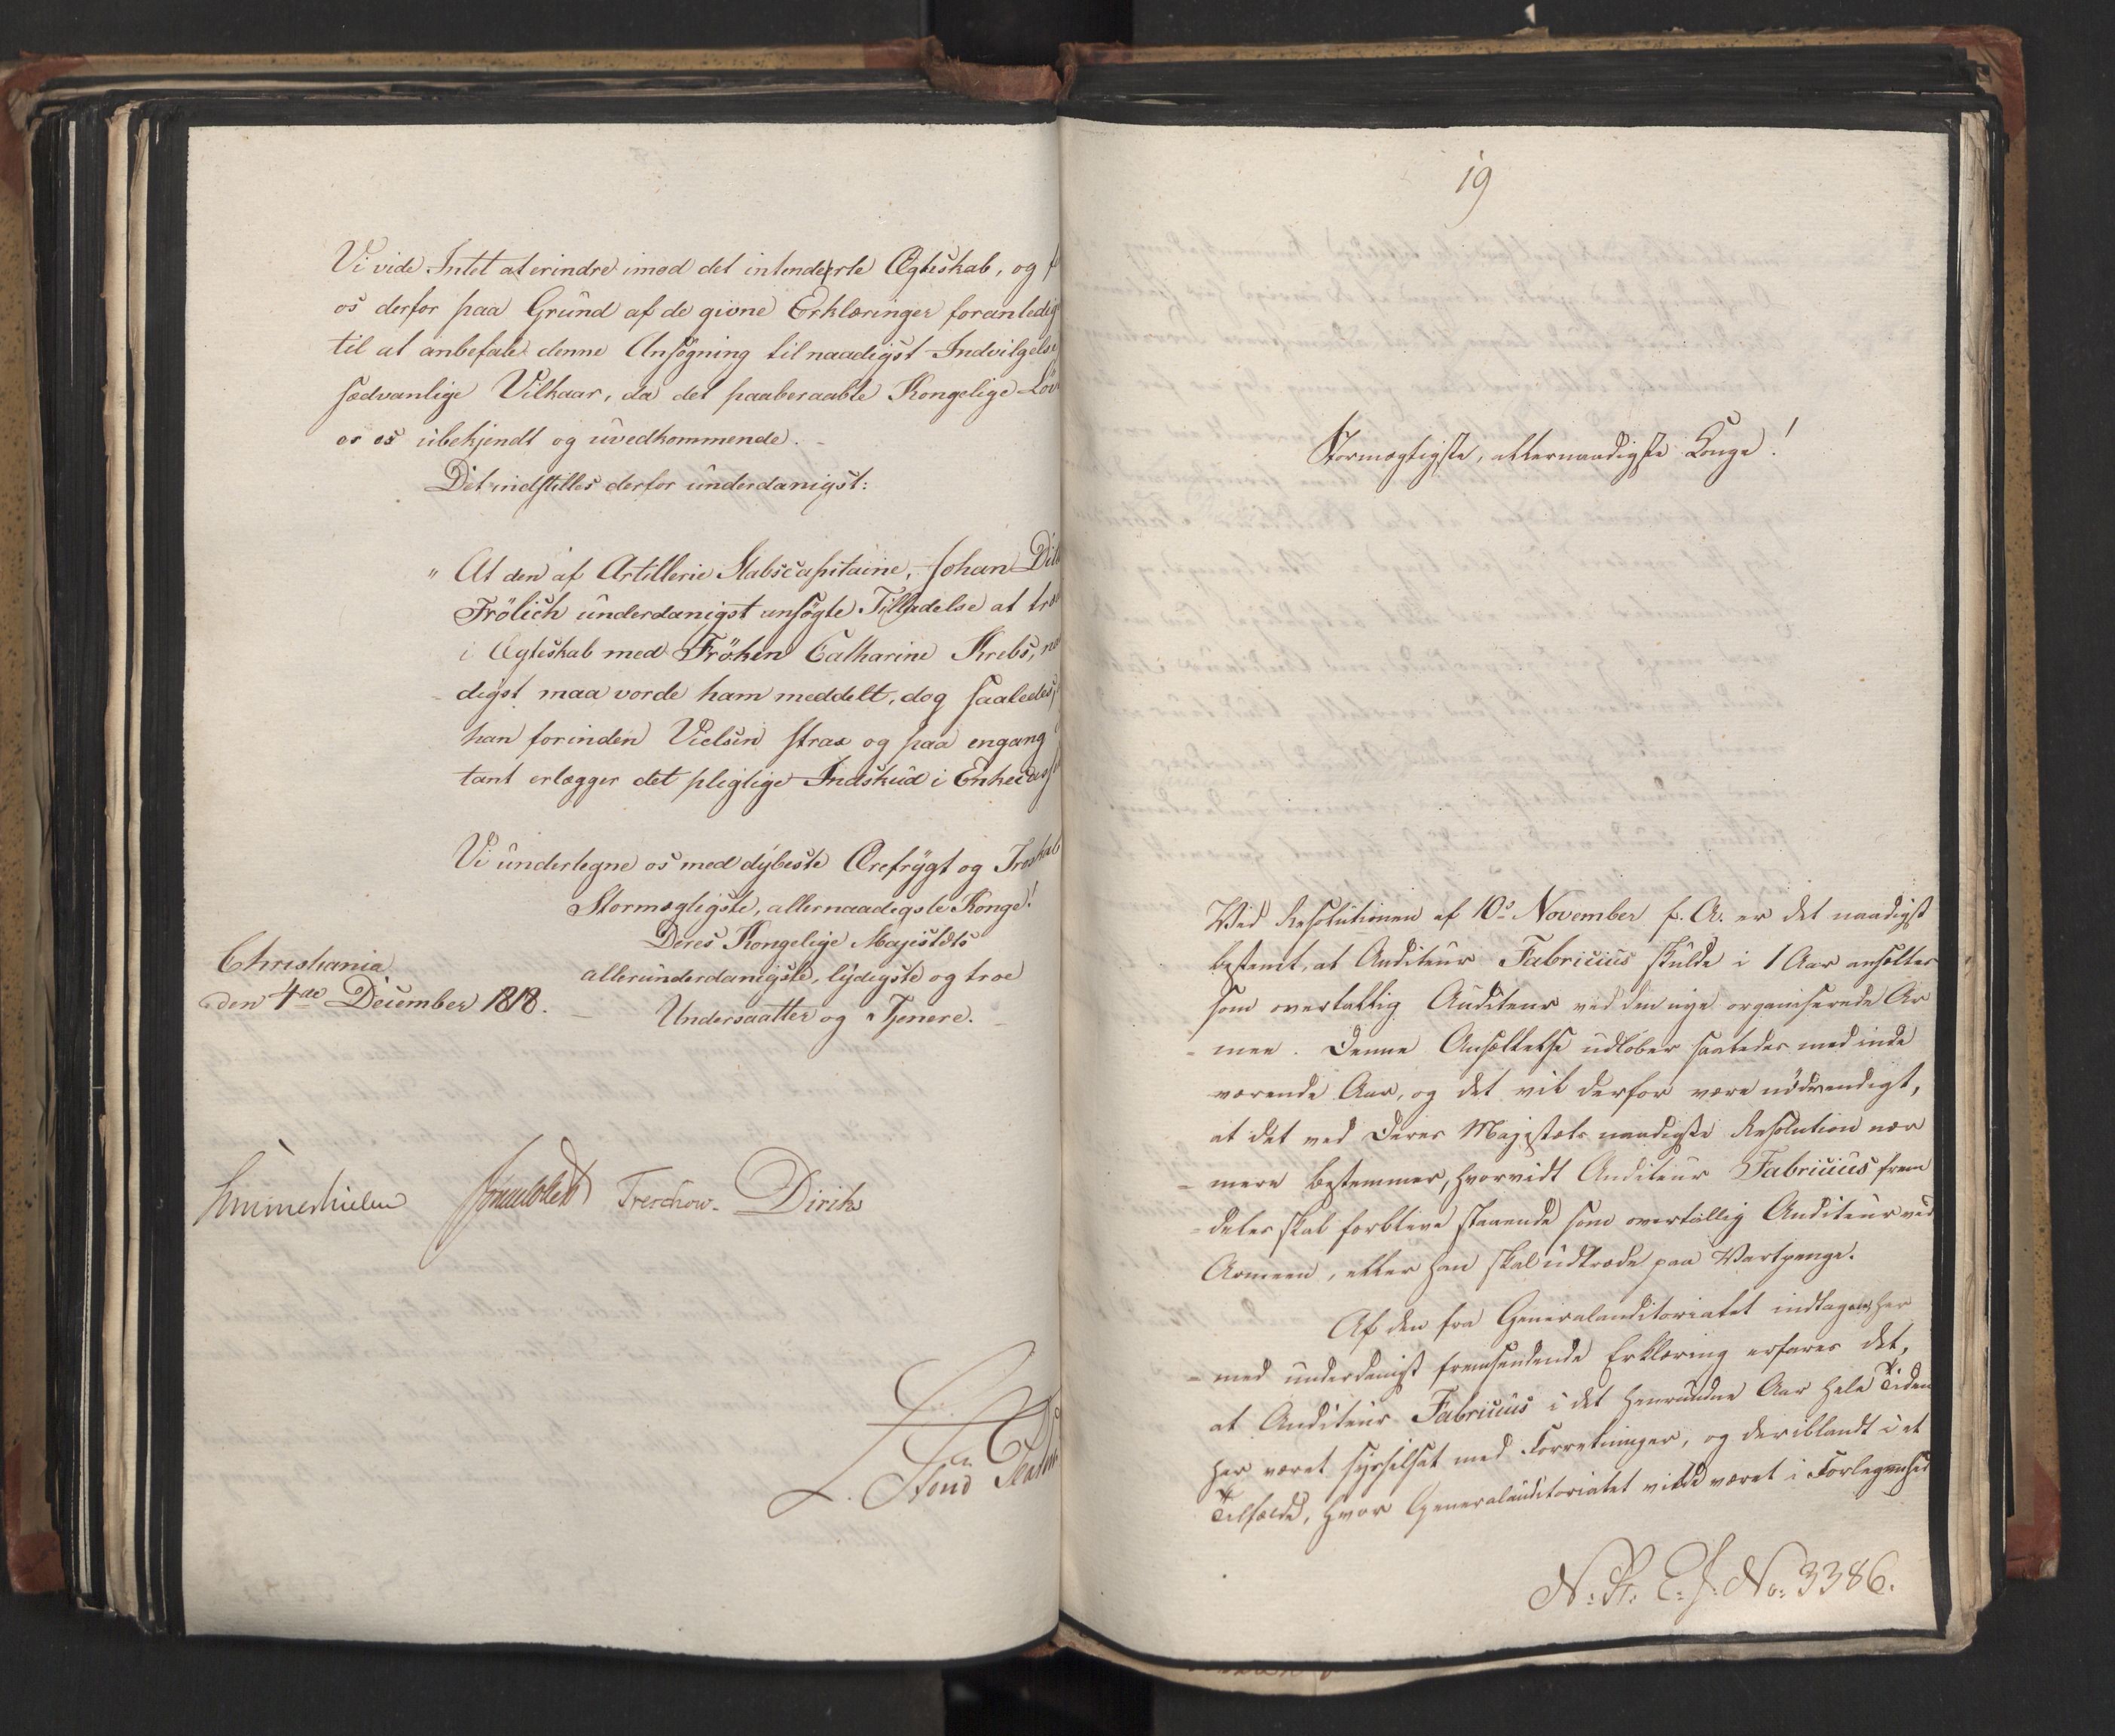 Vi vide Intet at erindre imod det intenderte Ægteskab, og f
os derfor paa Grund af de givne Erklæringer foranledig
til at anbefale denne Ansøgning til naadigst Indvilgelse
sædvanlige Vilkaar, da det paaberaabte Kongelige Løv
er os ubekjendt og uvedkommende.
Det indstilles derfor underdanigst:
" At den af Artillerie Stabscapitaine, Johan Dit
Frölich underdanigst ansøgte Tilladelse at træ
i Ægteskab med Fröken Catharine Krebs, na
digst maa vorde ham meddelt, dog saaledes,
han forinden Vielsen strax og paa engang
tant erlægger det pligtige Indskud i Enkecass
Vi undertegne os med dybeste Ærefrygt og Troskab
Stormægtigste, allernaadigste Konge!
Deres Kongelige Majestæts
allerunderdanigste, lydigste og troe
Undersaatter og Tjenere.
Christiania
den 4de December 1818.
Hmmerhielm Treschow. Diriks
19
Stormægtigste, allernaadigste Konge!
Ved Resolutionen af 10de November f. A. er det naadigst
bestemt, at Auditeur Fabricius skulde i 1 Aar ansættes
som overtallig Auditeur ved den nye organiserede Ar
-mee. Denne Ansættelse udløber saaledes med inde
værende Aar, og det vil derfor være nödvendigt,
at det ved Deres Majestæts naadigste Resolution nær
-mere bestemmes, hvorvidt Auditeur Fabricius frem
-deles skal forblive staaende som overtallig Auditeur ved
Armeen, eller han skal udtræde paa Vartpenge.
Af den fra Generalauditoriatet indtagne, her
-med underdanigst fremsendende Erklæring erfares det,
at Auditeur Fabricius i det henrundne Aar hele Tiden
har været sysselsat med Forretninger, og deriblandt i et
Tilfælde, hvor Generalauditoriatet vilde været i Forlegenhed
N: R: C: J: No: 3386.